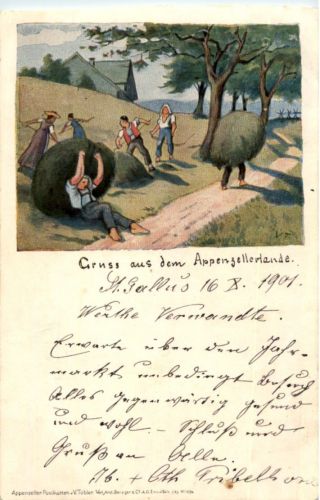 Gruss aus dem Appenzellerlande.
St. Gallus 16 X. 1901.
Werthe Verwandte.
Erwarte über den Jahr-
markt unbedingt Besuch
Alles gegenwärtig gesund
und wohl - Schluß und
Gruß an Alle.
Appenzeller Postkarten v. V. Tobler.